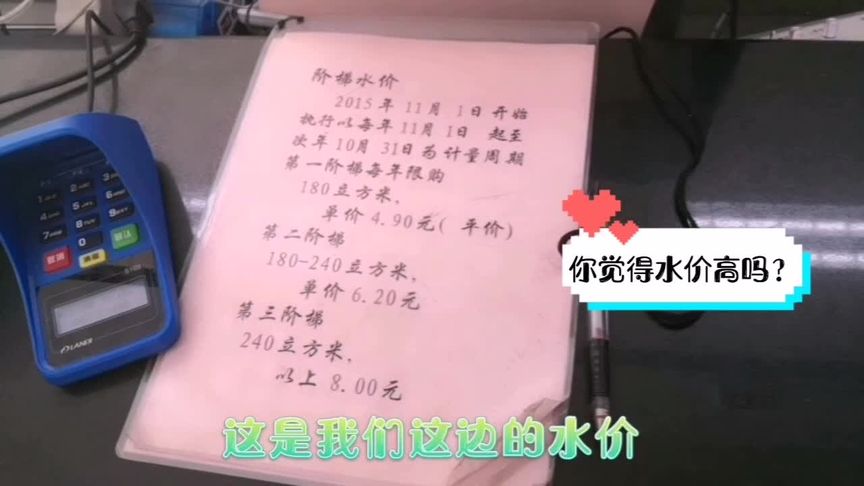 阶梯水价
2015年 11月 1日 开始
执行以每年 11月 1日 起至
次年 10月 31日为 计量周期
第一阶梯每年限购
180立方米，
单价 4.90元( 平价)
第二阶梯
180-240立方米，
单价 6.20元
第三阶梯
240立方米，
以上 8.00元
你觉得水价高吗？
这是我们这边的水价
取消
清除
确认
LANDI